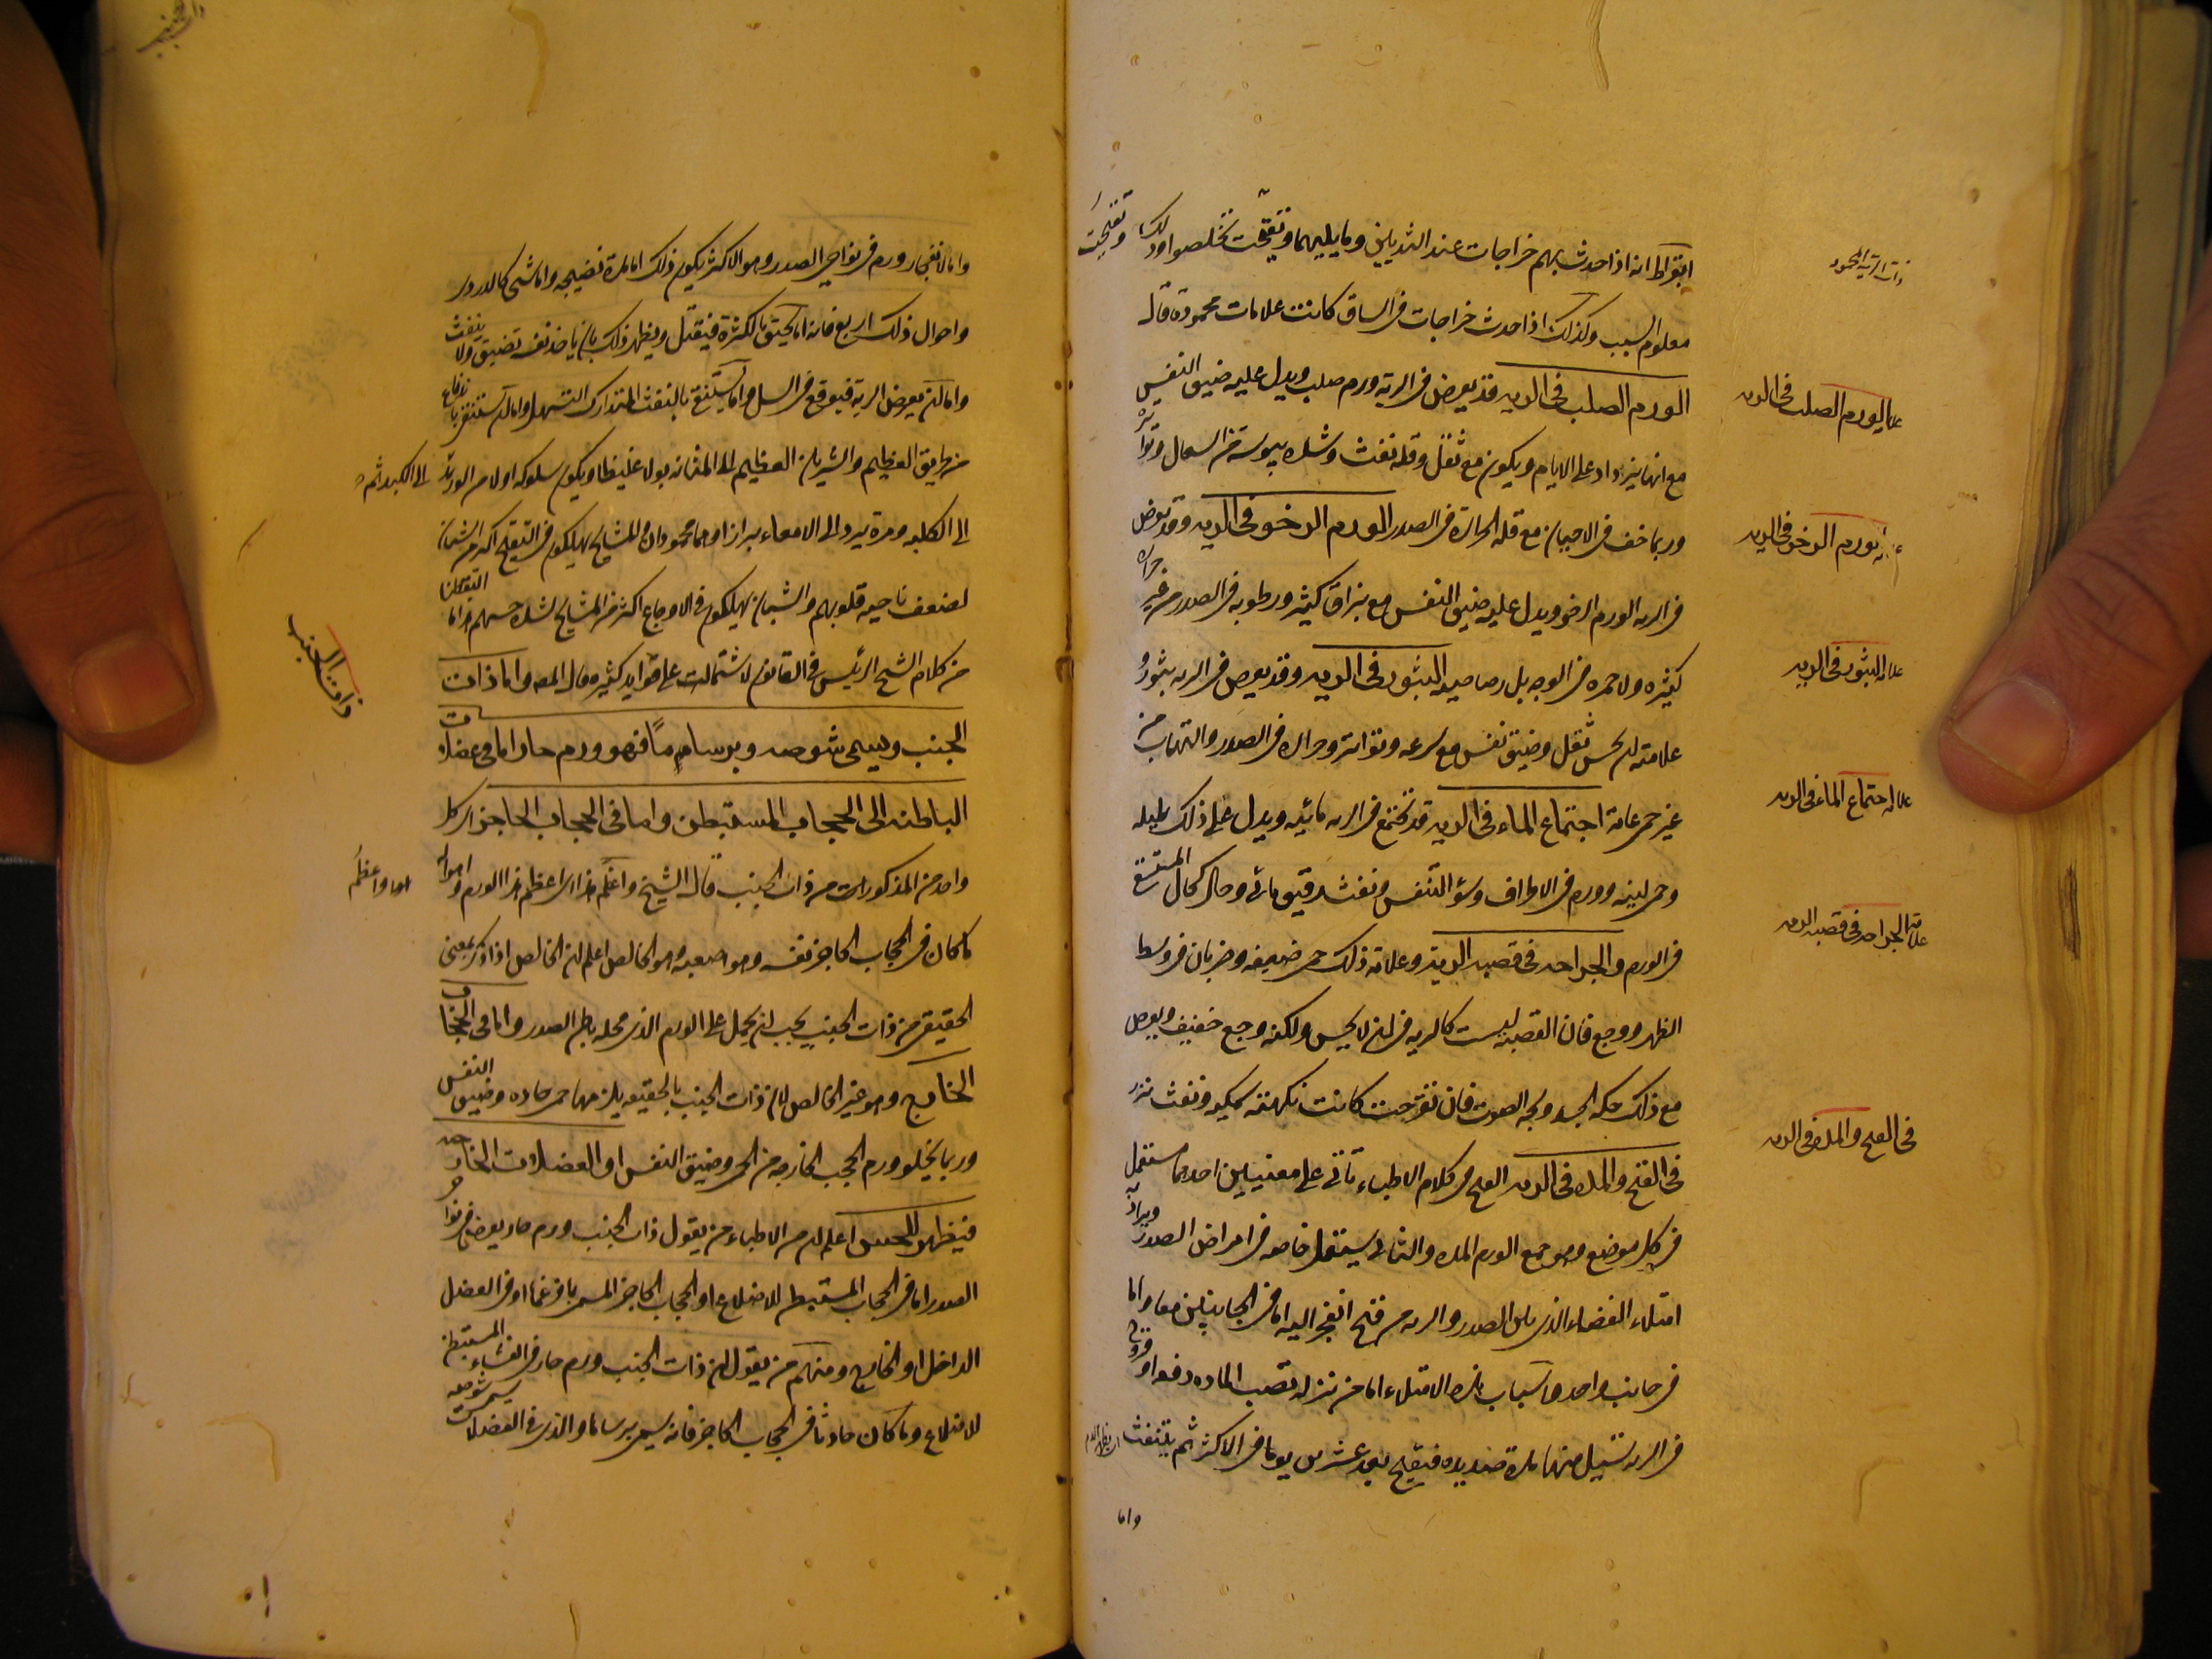 ابقراط انه اذا حدث بهم خراجات عند الثديين وما يليهما وتقيحت تخلصوا وذلك
وتفتحت
معلوم السبب وكذلك اذا حدث خراجات فى الساق كانت علامات محمودة قال
الورم الصلب فى الريه قد يعرض فى الرية ورم صلب ويدل عليه ضيق النفس
مع انها يزداد على الايام ويكون مع ثقل وقله نفث وشده يبوسة من السعال وتواتره
وربما خف فى الاحيان مع قله الحرارة فى الصدر الورم الرخو فى الريه وقد يعرض
فى الريه الورم الرخو ويدل عليه ضيق النفس مع بزاق كثير ورطوبه فى الصدر من غير حراره
كثيره ولا حمره فى الوجه بل رصاصيه البثور فى الريه وقد يعرض فى الريه بثور و
علامته ان يحس ثقل وضيق نفس مع سرعه وتواتر وحراره فى الصدر والتهاب من
غير حمى عامة اجتماع الماء فى الريه قد تجتمع فى الريه مائيه ويدل على ذلك
وحمى لينه وورم فى الاطراف وسوء التنفس ونفث رقيق مائى وحال كحال المستسقى
فى الورم والجراحه فى قصبه الرية وعلامة ذلك حمى ضعيفه وضربان فى وسط
الظهر ووجع فان القصبه ليست كالريه فى ان لا يحس ولكنه وجع خفيف ويعرض
مع ذلك حكه الجسد وبحه الصوت فان تقرحت كانت نكهته سمكيه ونفث نزر
فى القيح والمده فى الريه القيح فى كلام الاطباء يأتى على معنيين احدهما مستعمل
فى كل موضع وهو جمع الورم المده والثانى يستعمل خاصه فى امراض الصدر ويراد به
امتلاء الفضاء الذى بين الصدر والريه من قيح انفجر اليه اما فى الجانبين معا واما
فى جانب واحد واسباب هذه الامتلاء اما من نزله تصب الماده دفعه او قروح
فى الريه تسيل منها مدة صديديه فيقيح بعد عشرين يوما فى الاكثر ثم ينفث
واما
علامه الورم الصلب فى الريه
الورم الرخو فى الريه
علامه البثور فى الريه
علامه اجتماع الماء فى الريه
علامة الجراحه فى قصبه الريه
فى القيح والمده فى الريه
واما لانفجار ورم فى نواحى الصدر وهو الاكثر يكون ذلك اما مدة نضيجه واما شئ كالدردى
واحوال ذلك اربع فانه اما يخنق بالكثرة فيقتل ويظهر ذلك بان ياخذ نفسه تضيق ولا ينفث
واما ان يعرض الرية فيوقع فى السل واما يستنقع بالنفث المتدارك السهل واما ان يستنقى باندفاع
من طريق العظيم والشريان العظيم الى المثانه بولا غليظا ويكون سلوكه اولا من الوريد الى الكبد ثم
الى الكليه ومرة يرد الى الامعاء برازا وهما محمودان والمشايخ يهلكون فى التقيح اكثر من الشبان
لضعف ناحيه قلوبهم والشبان يهلكون فى الاوجاع اكثر من المشايخ لشده حسهم هذا ما التقطنا
من كلام الشيخ الرئيس فى القانون لاشتمالت على فوايد كثيره قال المصـ واما ذات
الجنب ويسمى شوصه وبرسام ما فهو ورم حار اما فى عضلات
الباطنه الى الحجاب المستبطن واما فى الحجاب الحاجز اى كل
واحد من المذكورات من ذات الجنب قال الشيخ واعظم هذا اى اعظم هذا الورم واهوله
ما كان فى الحجاب الحاجز نفسه وهو اصعبه وهو الخالص اعلم ان الخالص اذا ذكر بمعنى
الحقيقى من ذات الجنب يجب ان يحمل على الورم الذى محله باطن الصدر واما فى الحجاب
الخارج وهو غير الخالص لان ذات الجنب بالحقيقه يلزمها حمى حاده وضيق النفس
وربما يخلو ورم الحجب الخارجه من الحمى وضيق النفس او العضلات الخارجه
فيظهر للحس اعلم ان من الاطباء من يقول ذات الجنب ورم حار يعرض فى نواحى
الصدر اما فى الحجاب المستبطن للاضلاع او الحجاب الحاجز المسمى بافرغما او فى العضل
الداخل او الخارج ومنهم من يقول ان ذات الجنب ورم حار فى الغشاء المستبطن
للاضلاع وما كان حادثا فى الحجاب الحاجز فانه يسمى برساما والذى فى العضلات يسمى شوصه
ذات الجنب